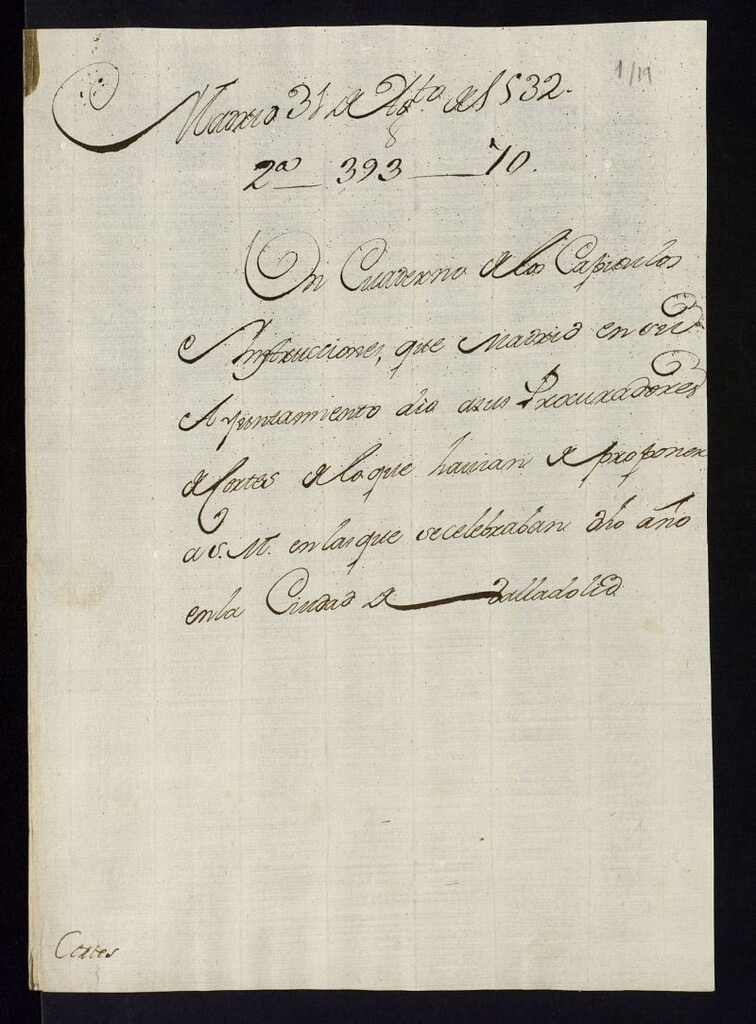 1/19
Madrid 31 de Agto de 1532.
2ª 393 70.
Un Cuaderno de los Capitulos
e Instrucciones, que Madrid en su
Ayuntamiento dio asus Procuradores
de Cortes de lo que havian de proponer
a S. M. en las que se celebraban dho año
en la Ciudad de Valladolid
Cortes